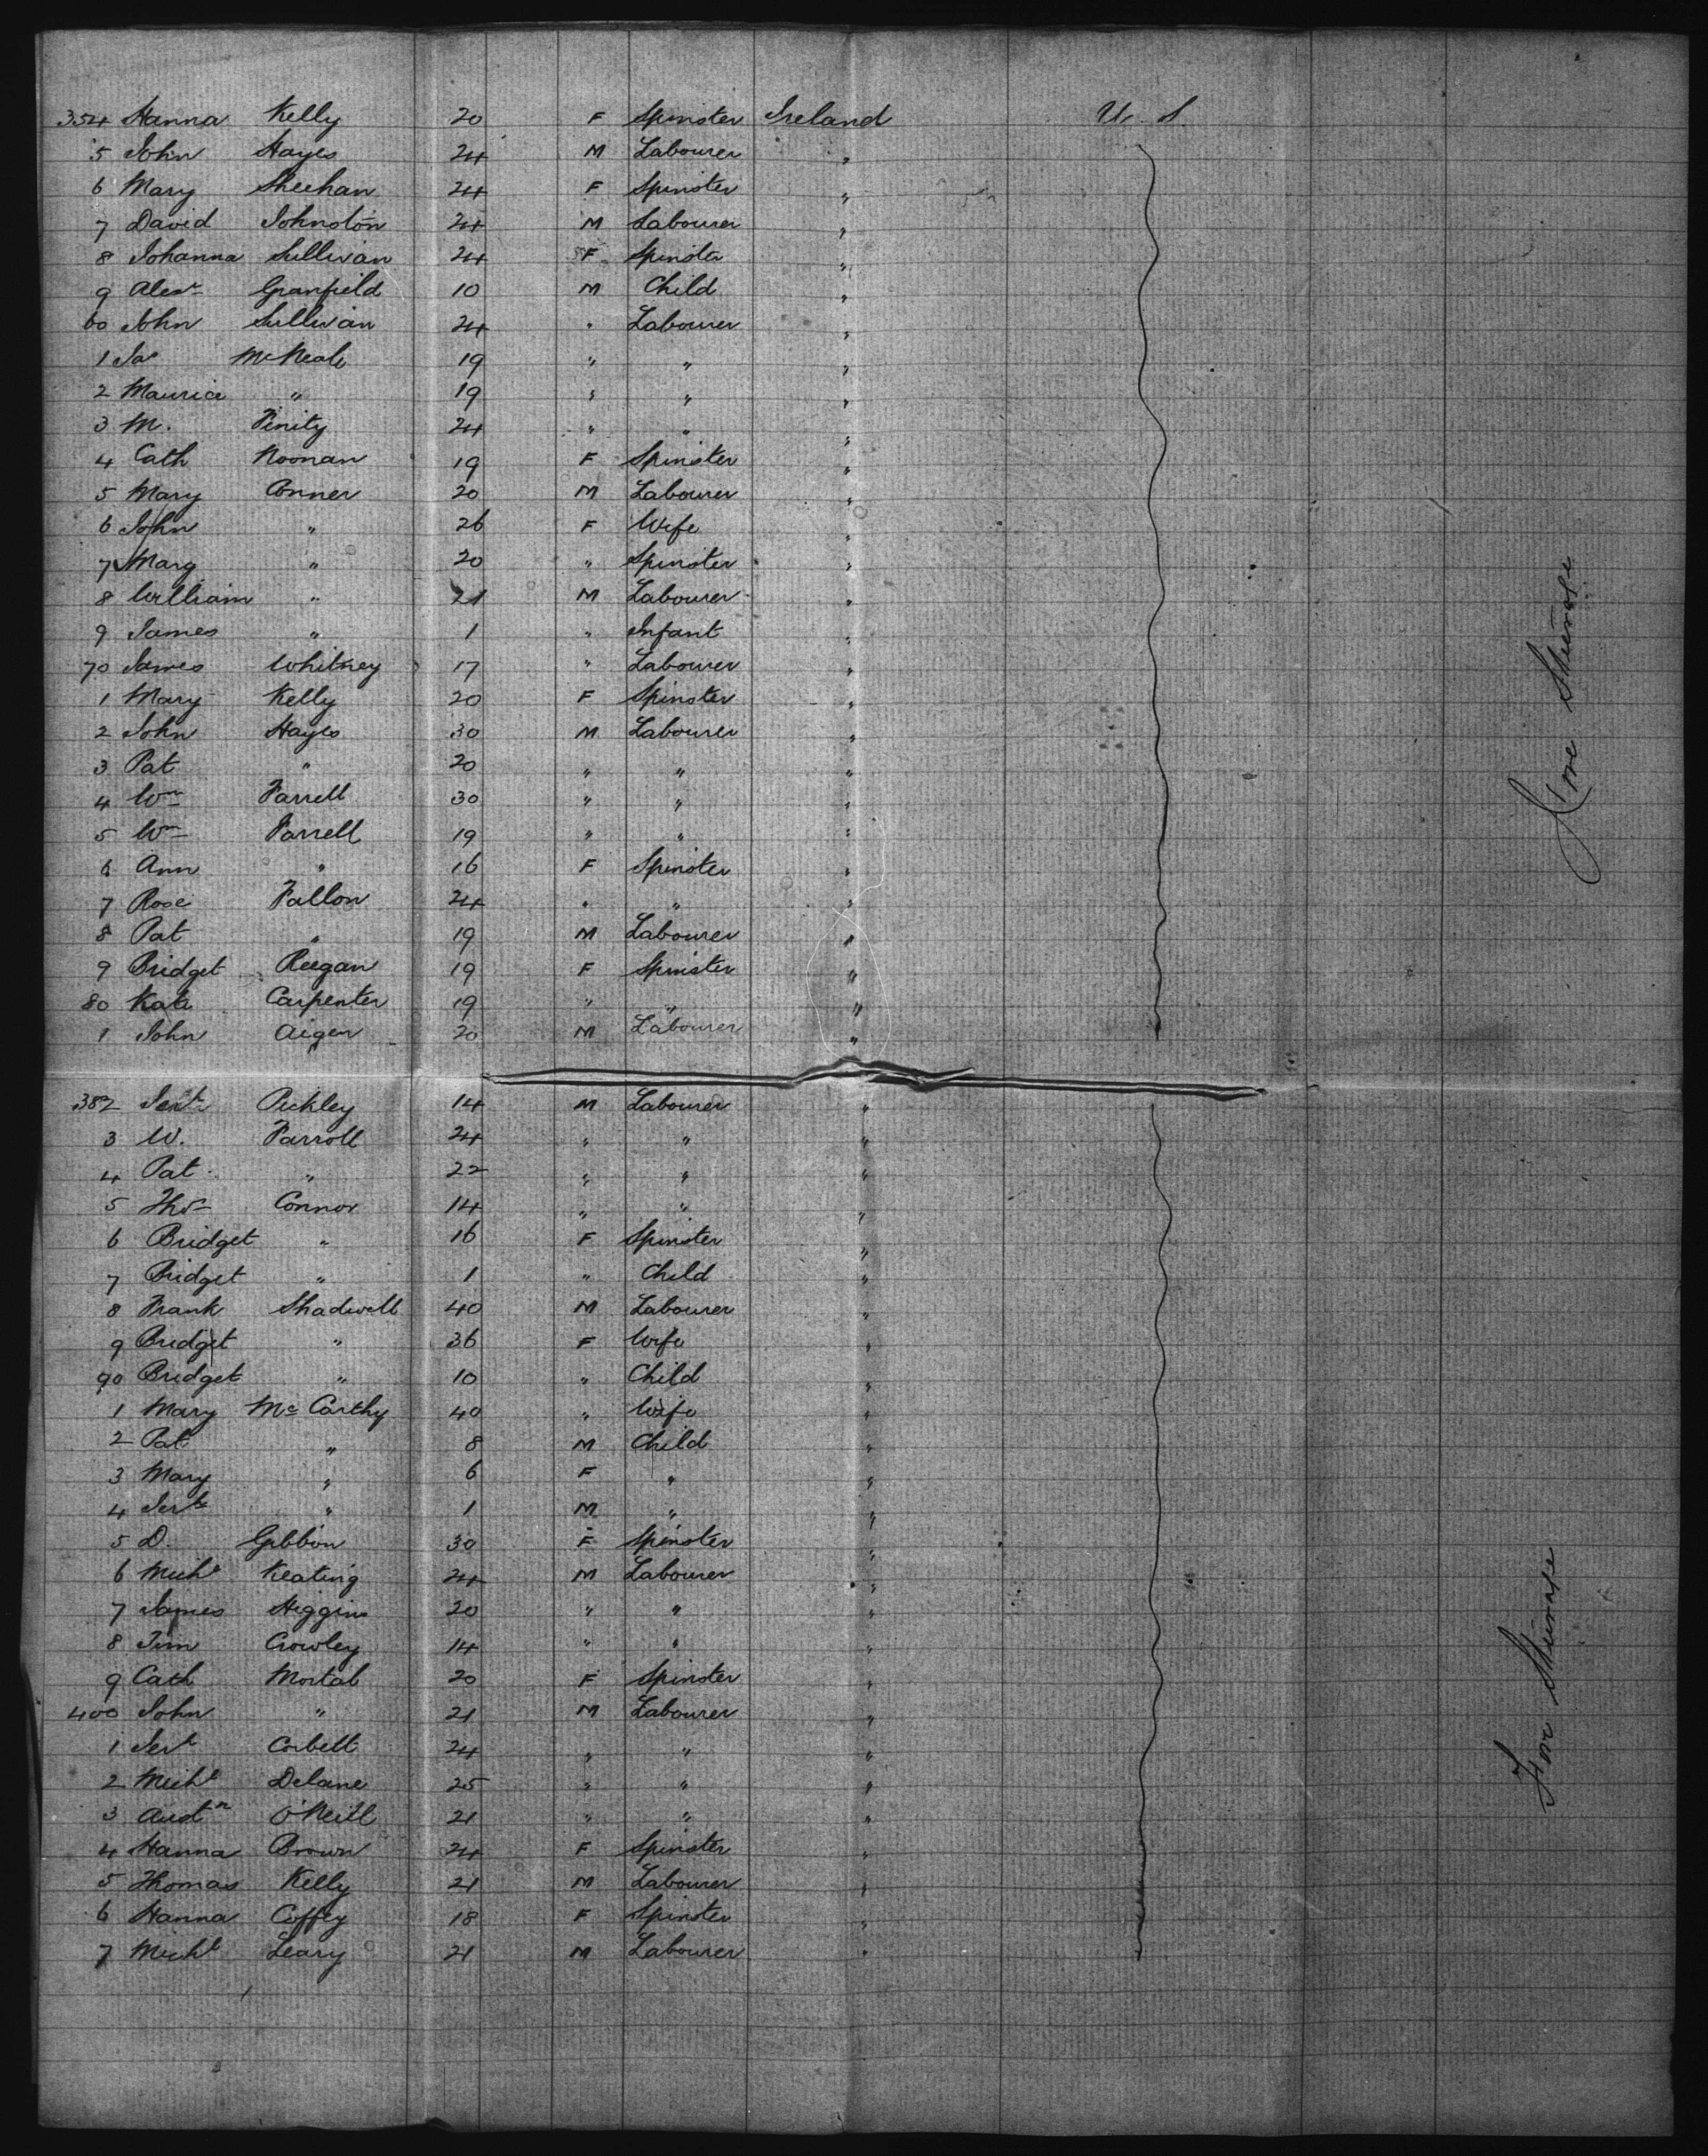 354 Hanna Kelly 20 F Spinster Ireland U. S.
5 John Hayes 24 M Labourer "
6 Mary Sheehan 24 F Spinster "
7 David Johnston 24 M Labourer "
8 Johanna Sullivan 24 F Spinster "
9 Alexr Granfield 10 M Child "
60 John Sullivan 24 " Labourer "
1 Jas McNeale 19 " " "
2 Maurice " 19 " " "
3 M. Finity 24 " " "
4 Cath Noonan 19 F Spinster "
5 Mary Conner 20 M Labourer "
6 John " 26 F Wife "
7 Mary " 20 " Spinster "
8 William " 21 M Labourer "
9 James " 1 " Infant "
70 James Whitney 17 " Labourer "
1 Mary Kelly 20 F Spinster "
2 John Hayes 30 M Labourer "
3 Pat " 20 " " "
4 Wm Farrell 30 " " "
5 Wm Farrell 19 " " "
6 Ann " 16 F Spinster "
7 Rose Fallon 24 " " "
8 Pat " 19 M Labourer "
9 Bridget Reegan 19 F Spinster "
80 Kate Carpenter 19 " " "
1 John Aigen 20 M Labourer "
382 Pickley 14 M Labourer "
3 W. Farroll 24 " " "
4 Pat " 22 " " "
5 Thos Connor 14 " " "
6 Bridget " 16 F Spinster "
7 Bridget " 1 " Child "
8 Frank Shadwell 40 M Labourer "
9 Bridget " 36 F Wife "
90 Bridget " 10 " Child "
1 Mary Mc Carthy 40 " Wife "
2 Pat " 8 M Child "
3 Mary " 6 F " "
4 " 1 M " "
5 D. Gibbon 30 F Spinster "
6 Michl Keating 24 M Labourer "
7 James Higgins 20 " " "
8 Tim Crowley 14 " " "
9 Cath Mortal 20 F Spinster "
400 John " 21 M Labourer "
1 Corbett 24 " " "
2 Michl Delane 25 " " "
3 O'Neill 21 " " "
4 Hanna Brown 24 F Spinster "
5 Thomas Kelly 21 M Labourer "
6 Hanna Coffey 18 F Spinster "
7 Michl Leary 21 M Labourer "